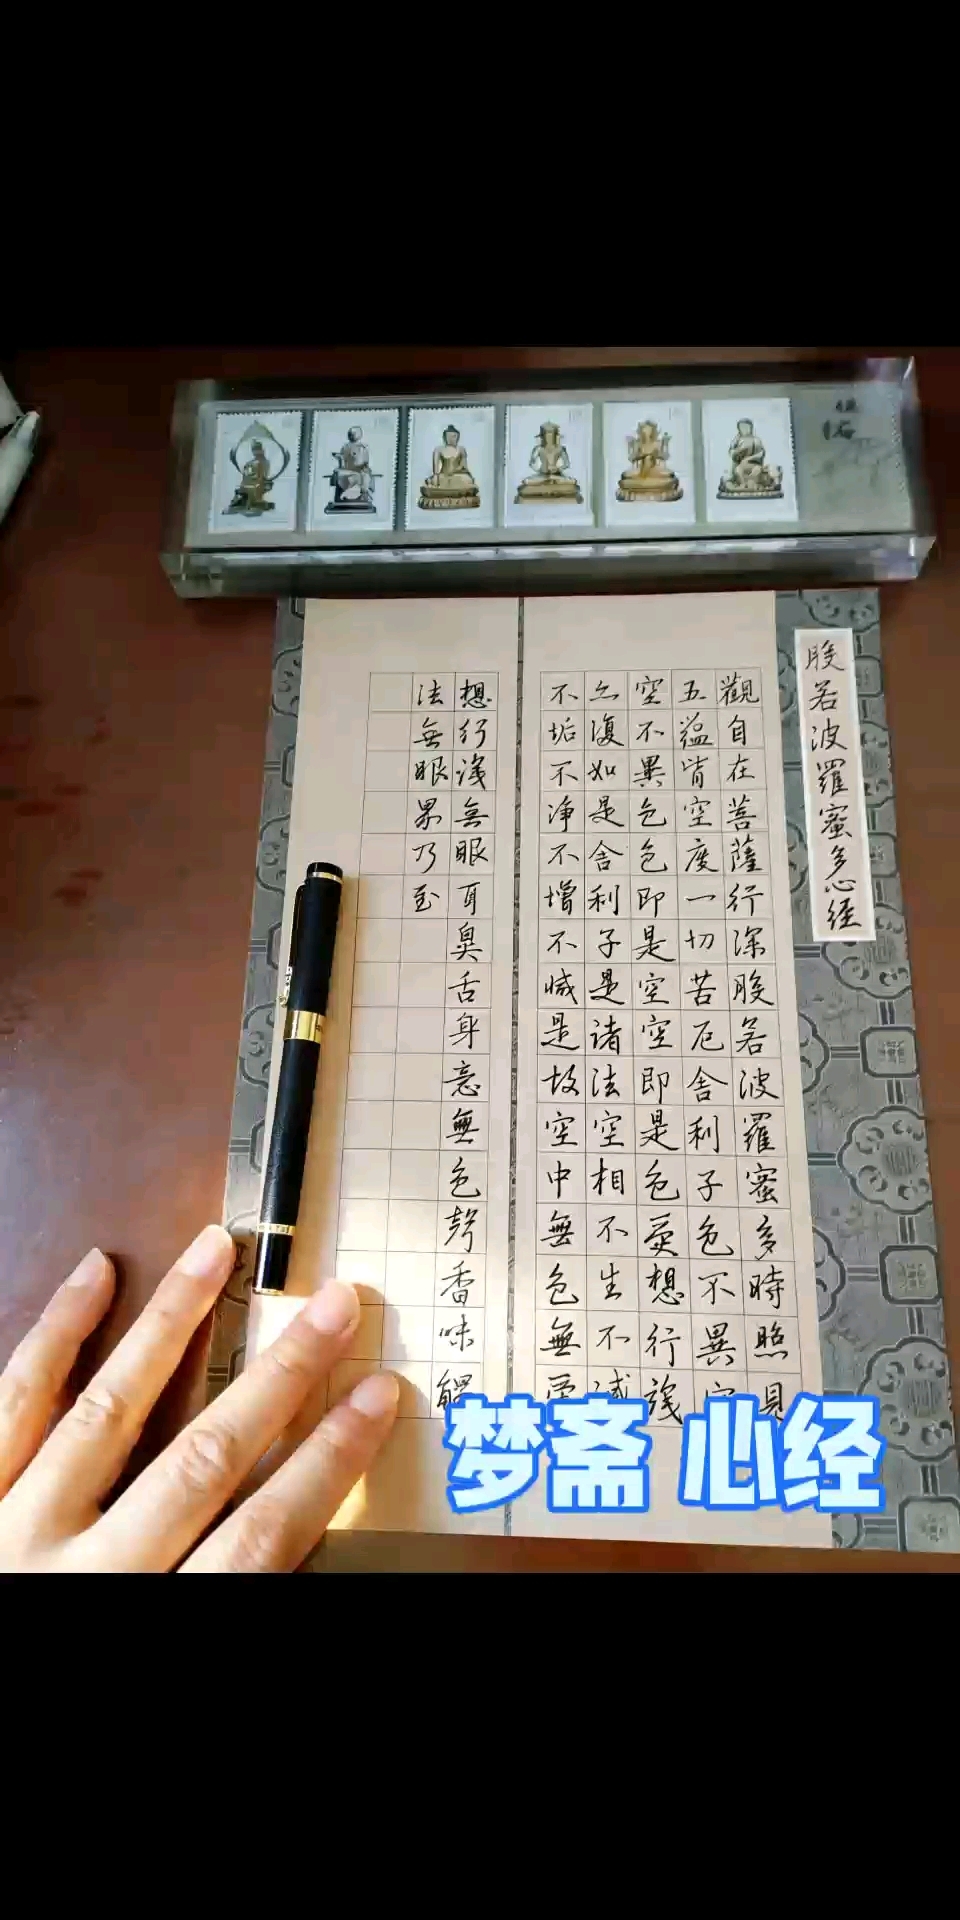 般若波羅蜜多心经
觀自在菩薩行深般若波羅蜜多時照見
五蕴皆空度一切苦厄舍利子色不異空
空不異色色即是空空即是色受想行識
亦復如是舍利子是诸法空相不生不減
不垢不净不增不减是故空中無色無受
想行識無眼耳鼻舌身意無色聲香味觸
法無眼界乃至
梦斋 心经